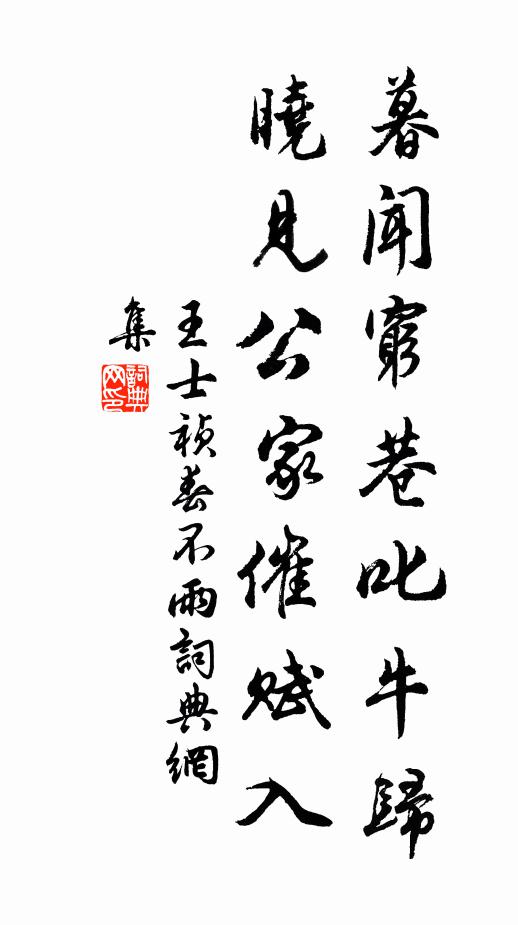 暮聞窮巷叱牛歸
曉見公家催賦入
王士禎春不雨詞典網
集
詞典
网印